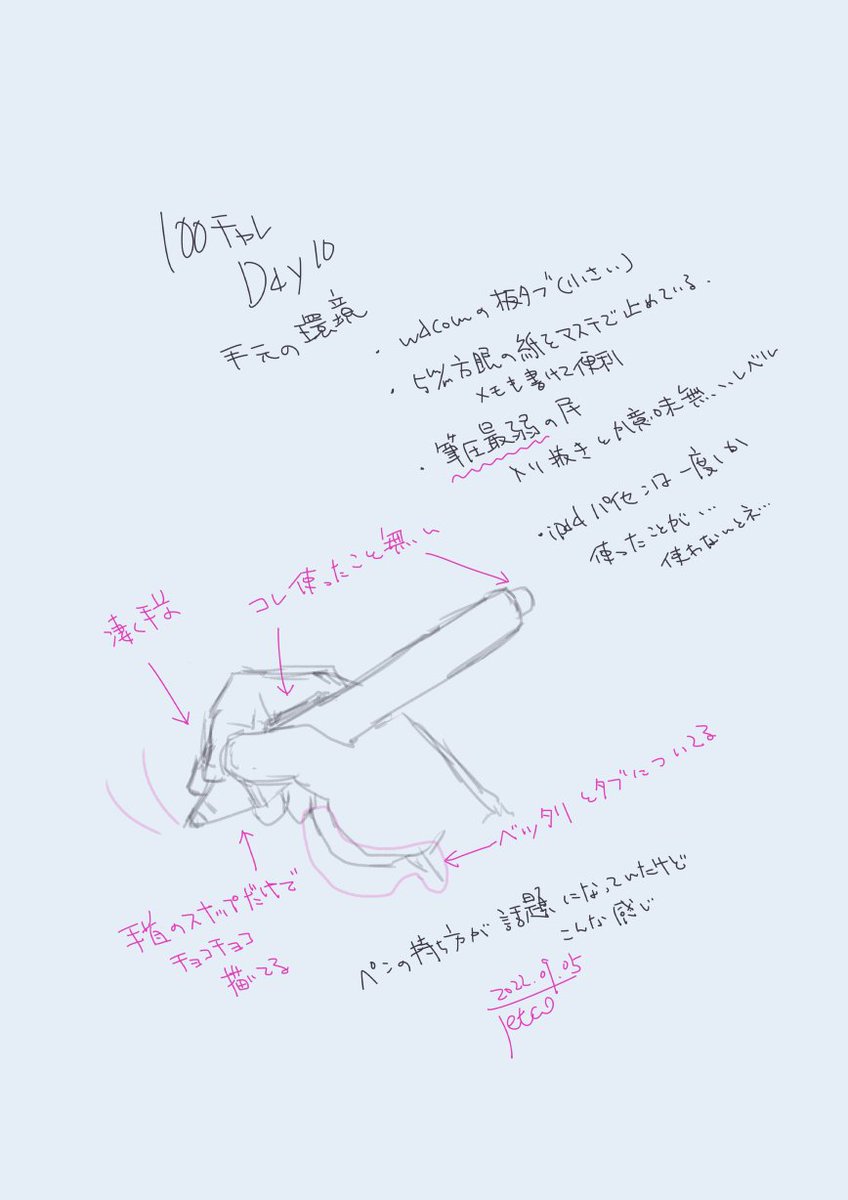 100チャレ
Day 10
手元の環境
・wacomの板タブ(小さい)
・5㍉方眼の紙をマステで止めている.
メモも書けて便利
・筆圧最弱の民
入リ抜きとか意味無いレベル
・ipadパイセンは一度しか
使ったことが…
使わないとネ…
コレ使ったこと無い
凄く手前
ベッタリとタブについてる
手首のスナップだけで
チョコチョコ
描いてる
ペンの持ち方が話題になっていたけど
こんな感じ
2022.09.05